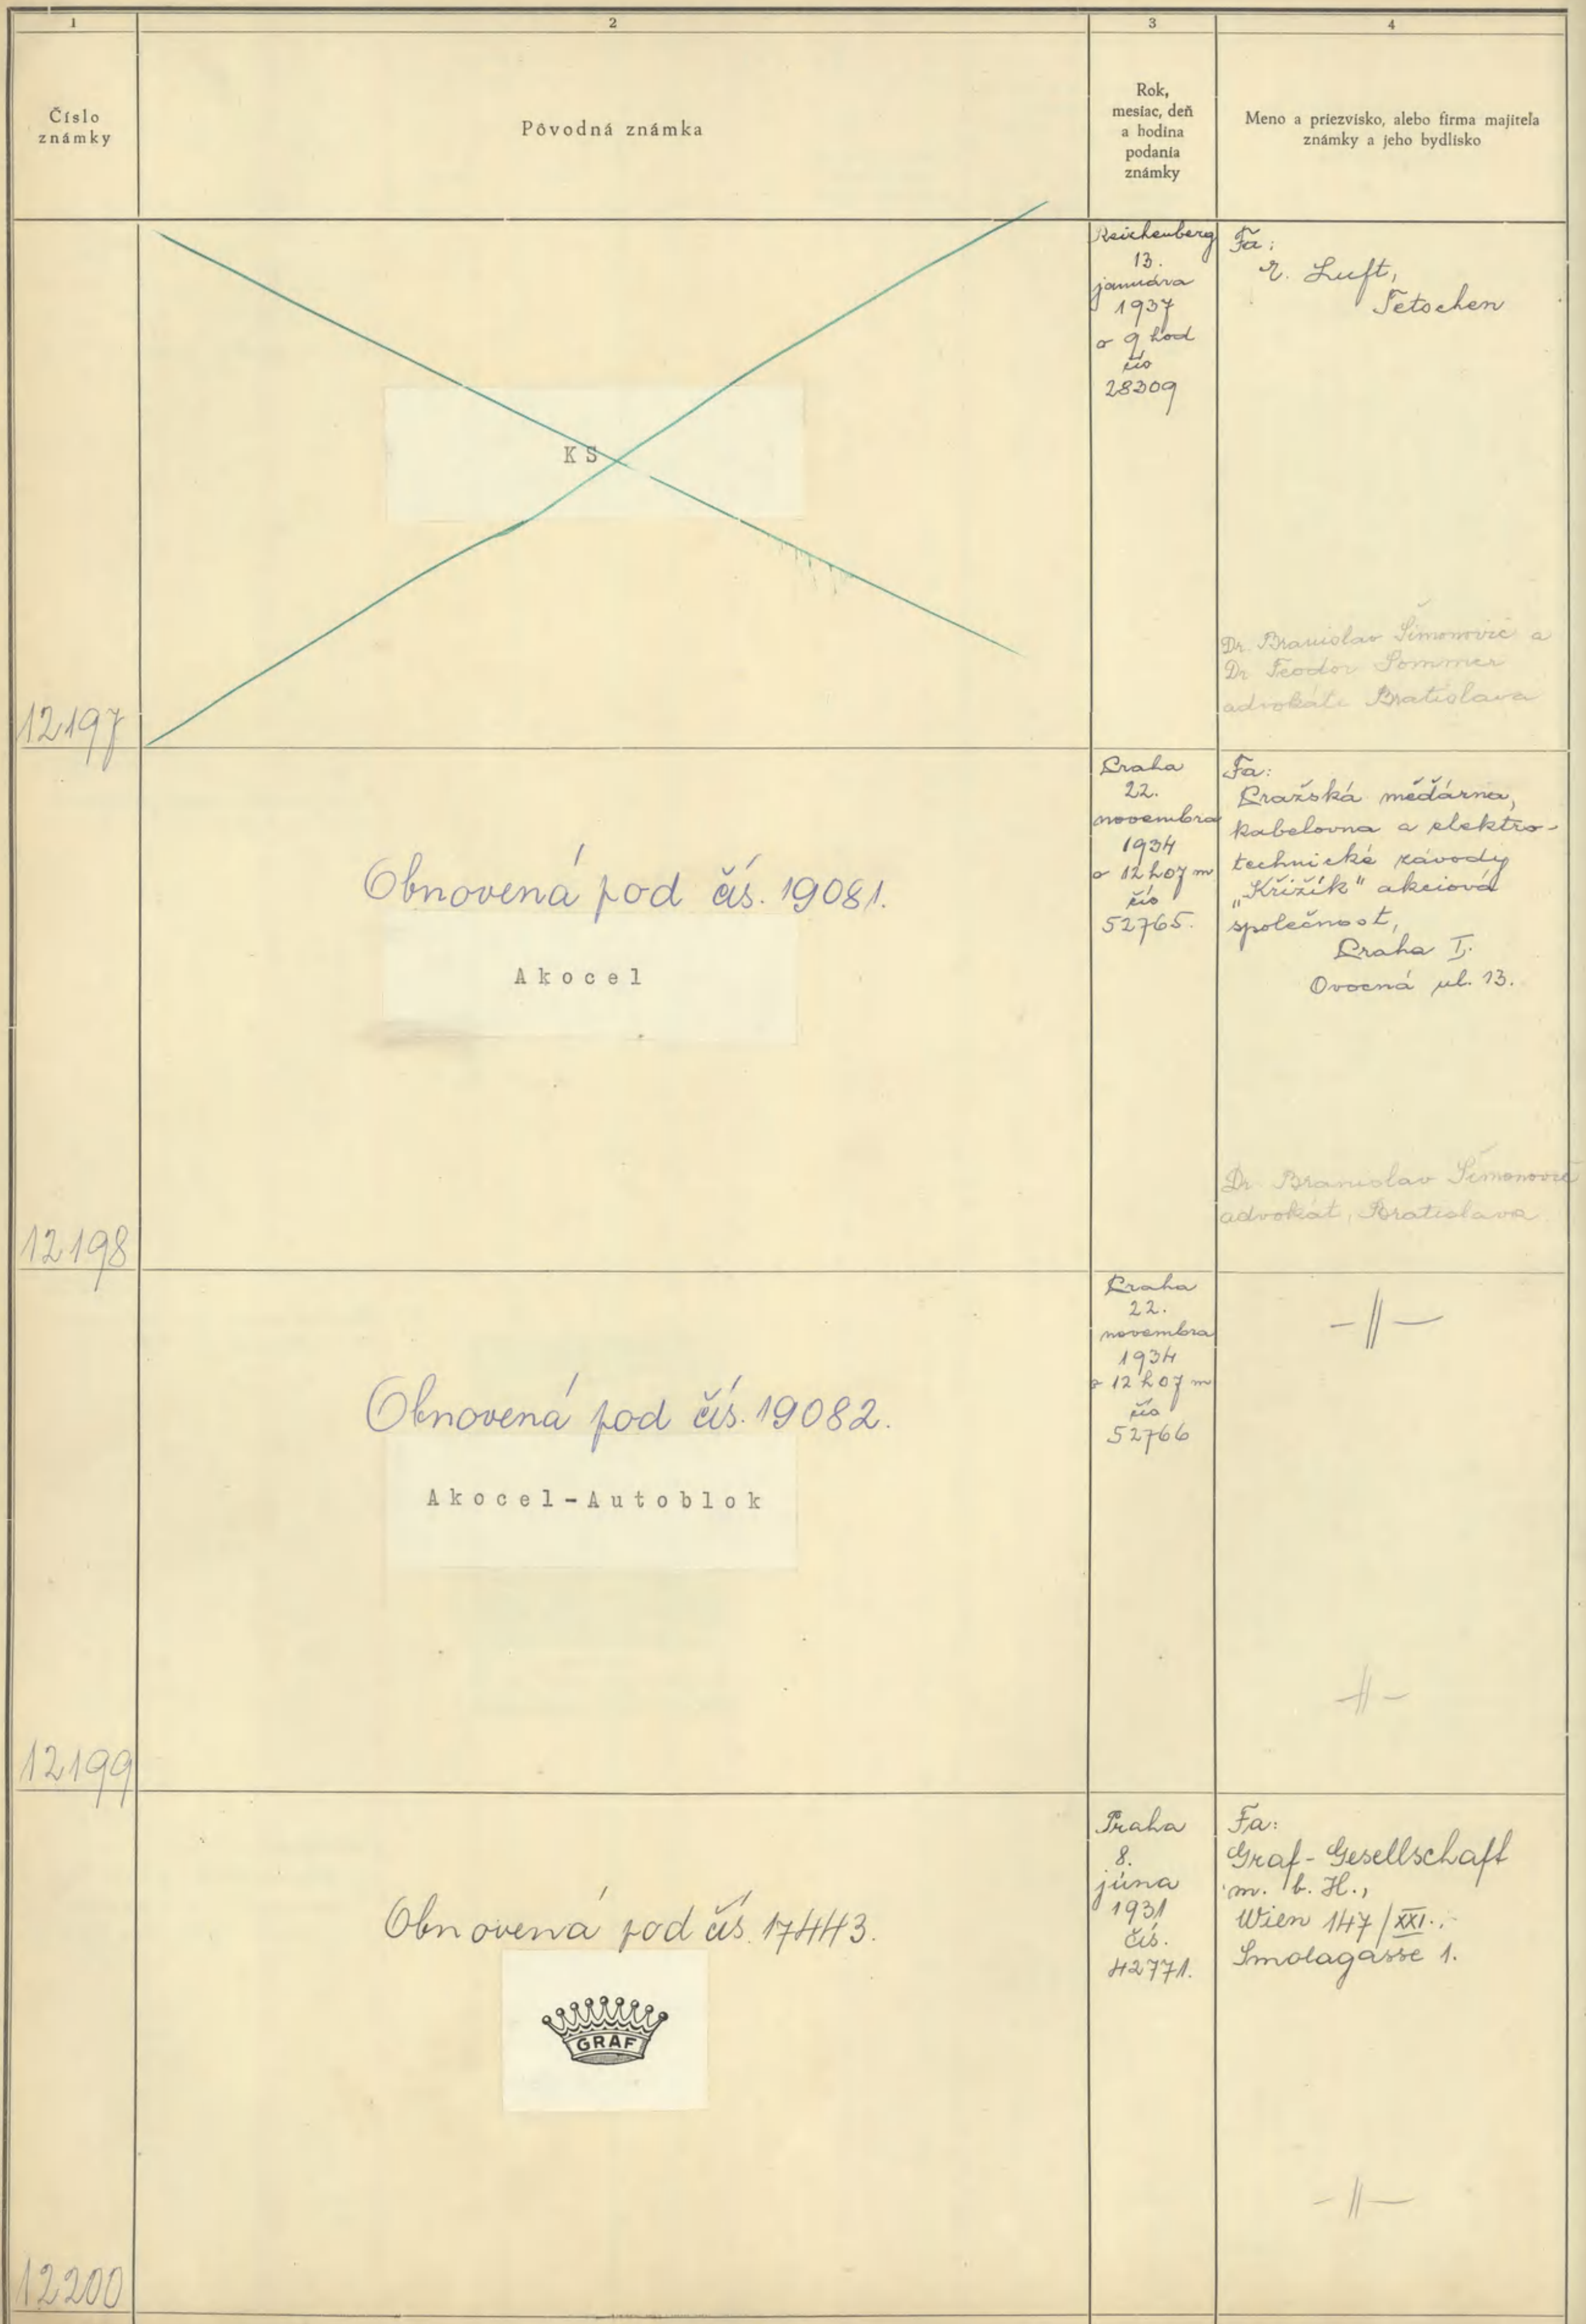 1
2
3
4
Číslo
známky
Pôvodná známka
Rok,
mesiac, deň
a hodina
podania
známky
Meno a priezvisko, alebo firma majiteľa
známky a jeho bydlisko
12197
K S
Reichenberg
13.
januára
1937
o 9 hod
čís
28309
Fa:
R. Luft,
Tetschen
Dr. Branislav Šimonovič a
Dr Teodor Sommer
advokáti Bratislava
12198
Obnovená pod čís. 19081.
Akocel
Praha
22.
novembra
1934
o 12 h 07 m
čís
52765.
Fa:
Pražská měďárna,
kabelovna a elektro-
technické závody
„Křižík" akciová
společnost,
Praha I.
Ovocná ul. 13.
Dr. Branislav Šimonovič
advokát, Bratislava
12199
Obnovená pod čís. 19082.
Akocel-Autoblok
Praha
22.
novembra
1934
o 12 h 07 m
čís
52766
-||-
-||-
12200
Obnovená pod čís. 17443.
GRAF
Praha
8.
júna
1931
čís.
42771.
Fa:
Graf-Gesellschaft
m. b. H.,
Wien 147/XXI.,
Smolagasse 1.
-||-